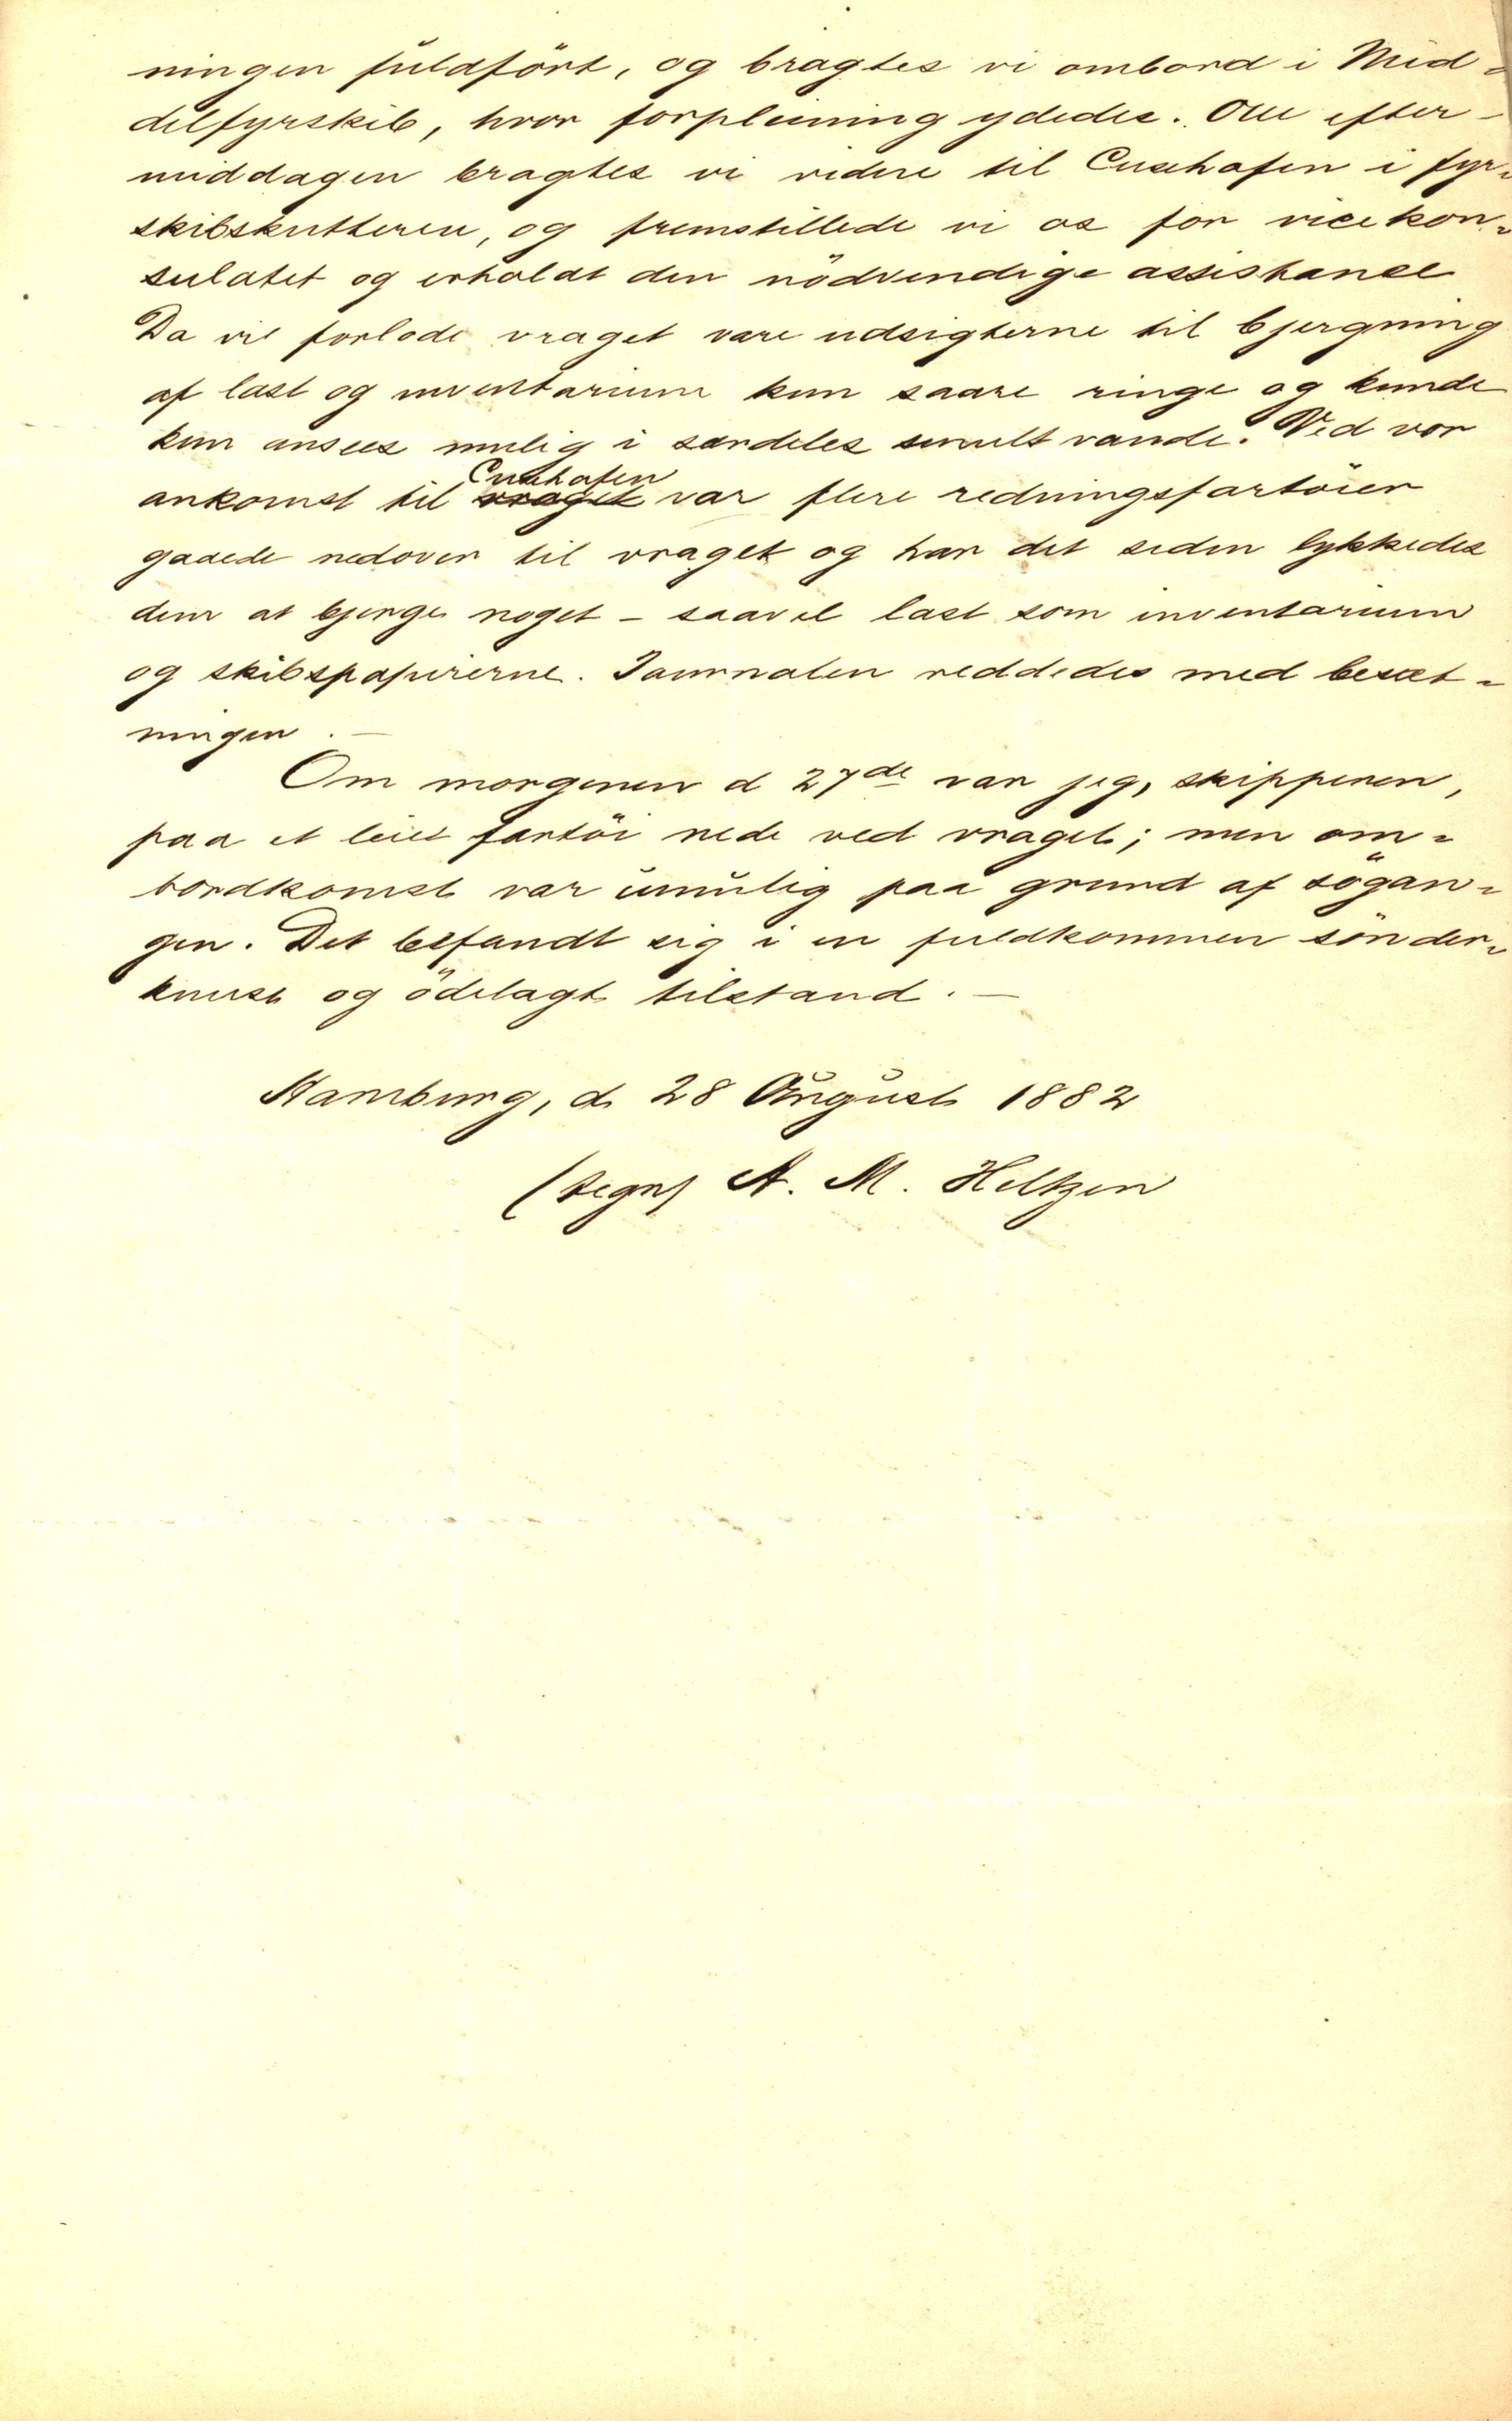 ningen fuldfört, og bragtes vi ombord i Mid-
delfyrskib, hvor forpleining ydedes. Om efter-
middagen bragtes vi videre til Cuxhafen i fyr-
skibskutteren, og fremstillede vi os for vicekon-
sulatet og erholdt den nödvendige assistance
Da vi forlode vraget vare udsigterne til bjergning
af last og inventarium kun saare ringe og kunde
kun ansees mulig i særdeles smult vande. Ved vor
Cuxhafen
ankomst til vraget var flere redningsfartöier
gaaede nedover til vraget og har det siden lykkedes
dem at bjerge noget - saavel last som inventarium
og skibspapirerne. Journalen reddedes med besæt-
ningen. -
Om morgenen d 27de var jeg, skipperen,
paa et leiet fartöi nede ved vraget; men om-
bordkomst var umulig paa grund af sögan-
gen. Det befandt sig i en fuldkommen sönder-
knust og ödelagt tilstand. -
Hamburg, d. 28 August 1882
(tegn) A. M. Heltzen